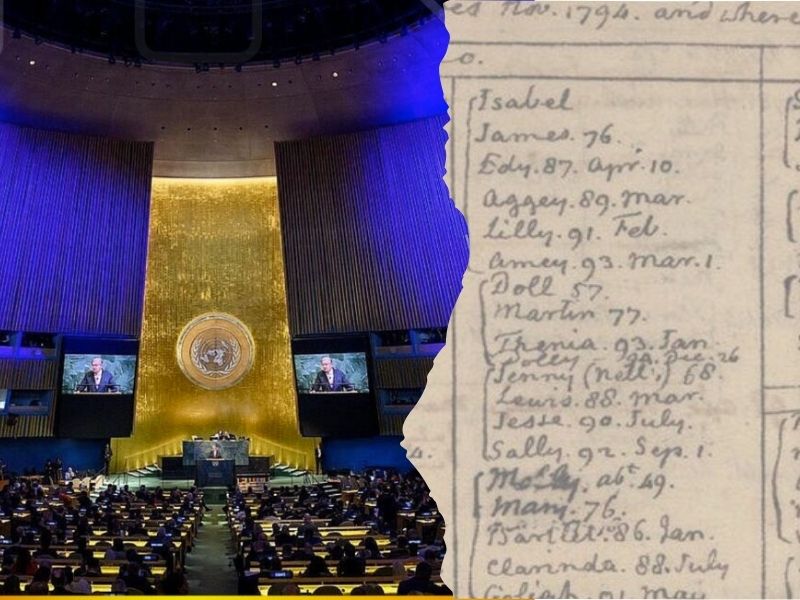 es Nov. 1794. and where
o.
Isabel
James. 76.
Edy. 87. Apr. 10.
Aggey. 89. Mar.
Lilly. 91. Feb.
Amey. 93. Mar. 1.
Doll 57.
Martin 77.
Thenia. 93. Jan
Dolley 94. Dec. 26
Jenny (Ned's) 68.
Lewis. 88. Mar.
Jesse. 90. July.
Sally. 92. Sep. 1.
Molly. abt. 49.
Mary. 76.
Bartlet. 86. Jan.
Clarinda. 88. July
Goliah. 91. May
4.